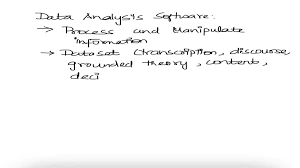 Data Analysis Software:
→ Process and Manipulate
information
→ Dataset (transcription, discourse,
grounded theory, content,
deci